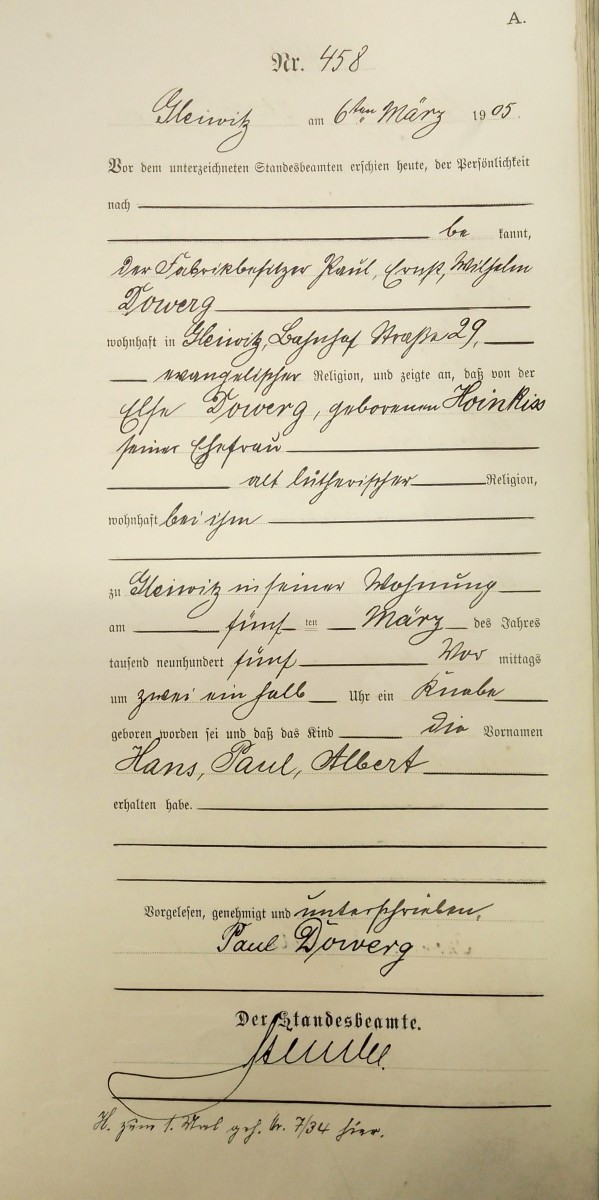 A.
Nr. 458
Gleiwitz am 6ten März 1905.
Vor dem unterzeichneten Standesbeamten erschien heute, der Persönlichkeit
nach
be kannt,
der Fabrikbesitzer Paul, Ernst, Wilhelm
Dowerg
wohnhaft in Gleiwitz, Bahnhof Straße 29,
evangelischer Religion, und zeigte an, daß von der
Else Dowerg, geborenen Hoinkiss
seiner Ehefrau
alt lutherischer Religion,
wohnhaft bei ihm
zu Gleiwitz in seiner Wohnung
am fünf ten März des Jahres
tausend neunhundert fünf Vor mittags
um zwei ein halb Uhr ein Knabe
geboren worden sei und daß das Kind die Vornamen
Hans, Paul, Albert
erhalten habe.
Vorgelesen, genehmigt und unterschrieben.
Paul Dowerg
Der Standesbeamte.
H. zum 1. Mal geh. Nr. 7/34 hier.